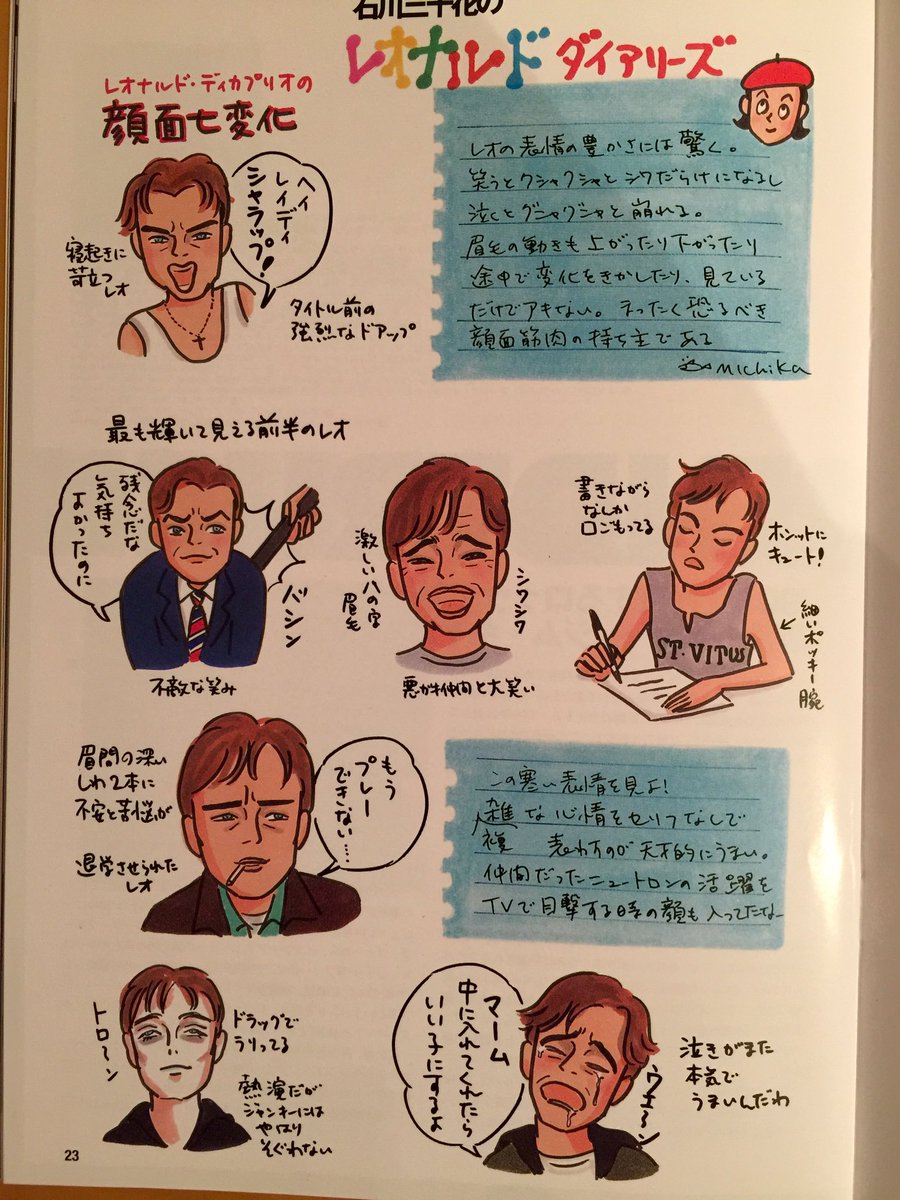 石川三千花の
レオナルド ダイアリーズ
レオナルド・ディカプリオの
顔面七変化
ヘイ
レイディ
シャラップ!
寝起きに
苛立つ
レオ
タイトル前の
強烈なドアップ
レオの表情の豊かさには驚く。
笑うとクシャクシャとシワだらけになるし
泣くとグシャグシャと崩れる。
眉毛の動きも上がったり下がったり
途中で変化をきかしたり、見ている
だけでアキない。まったく恐るべき
顔面筋肉の持ち主である
Michika
最も輝いて見える前半のレオ
残念だな
気持ち
よかったのに
バシン
不敵な笑み
激しい八の字
眉毛
シワシワ
悪ガキ仲間と大笑い
書きながら
なしか
口ごもってる
ホンットに
キュート!
細いポッキー腕
ST. VITUS
眉間の深い
しわ2本に
不安と苦悩が
退学させられた
レオ
もう
プレー
できない……
この寒い表情を見よ!
複雑な心情をセリフなしで
表わすのが天才的にうまい。
仲間だったニュートロンの活躍を
TVで目撃する時の顔も入ってたなー
トロ〜ン
ドラッグで
ラリってる
熱演だが
ジャンキーには
やはり
そぐわない
マーム
中に入れてくれたら
いい子にするよ
ウェ〜ン
泣きがまた
本気で
うまいんだわ
23